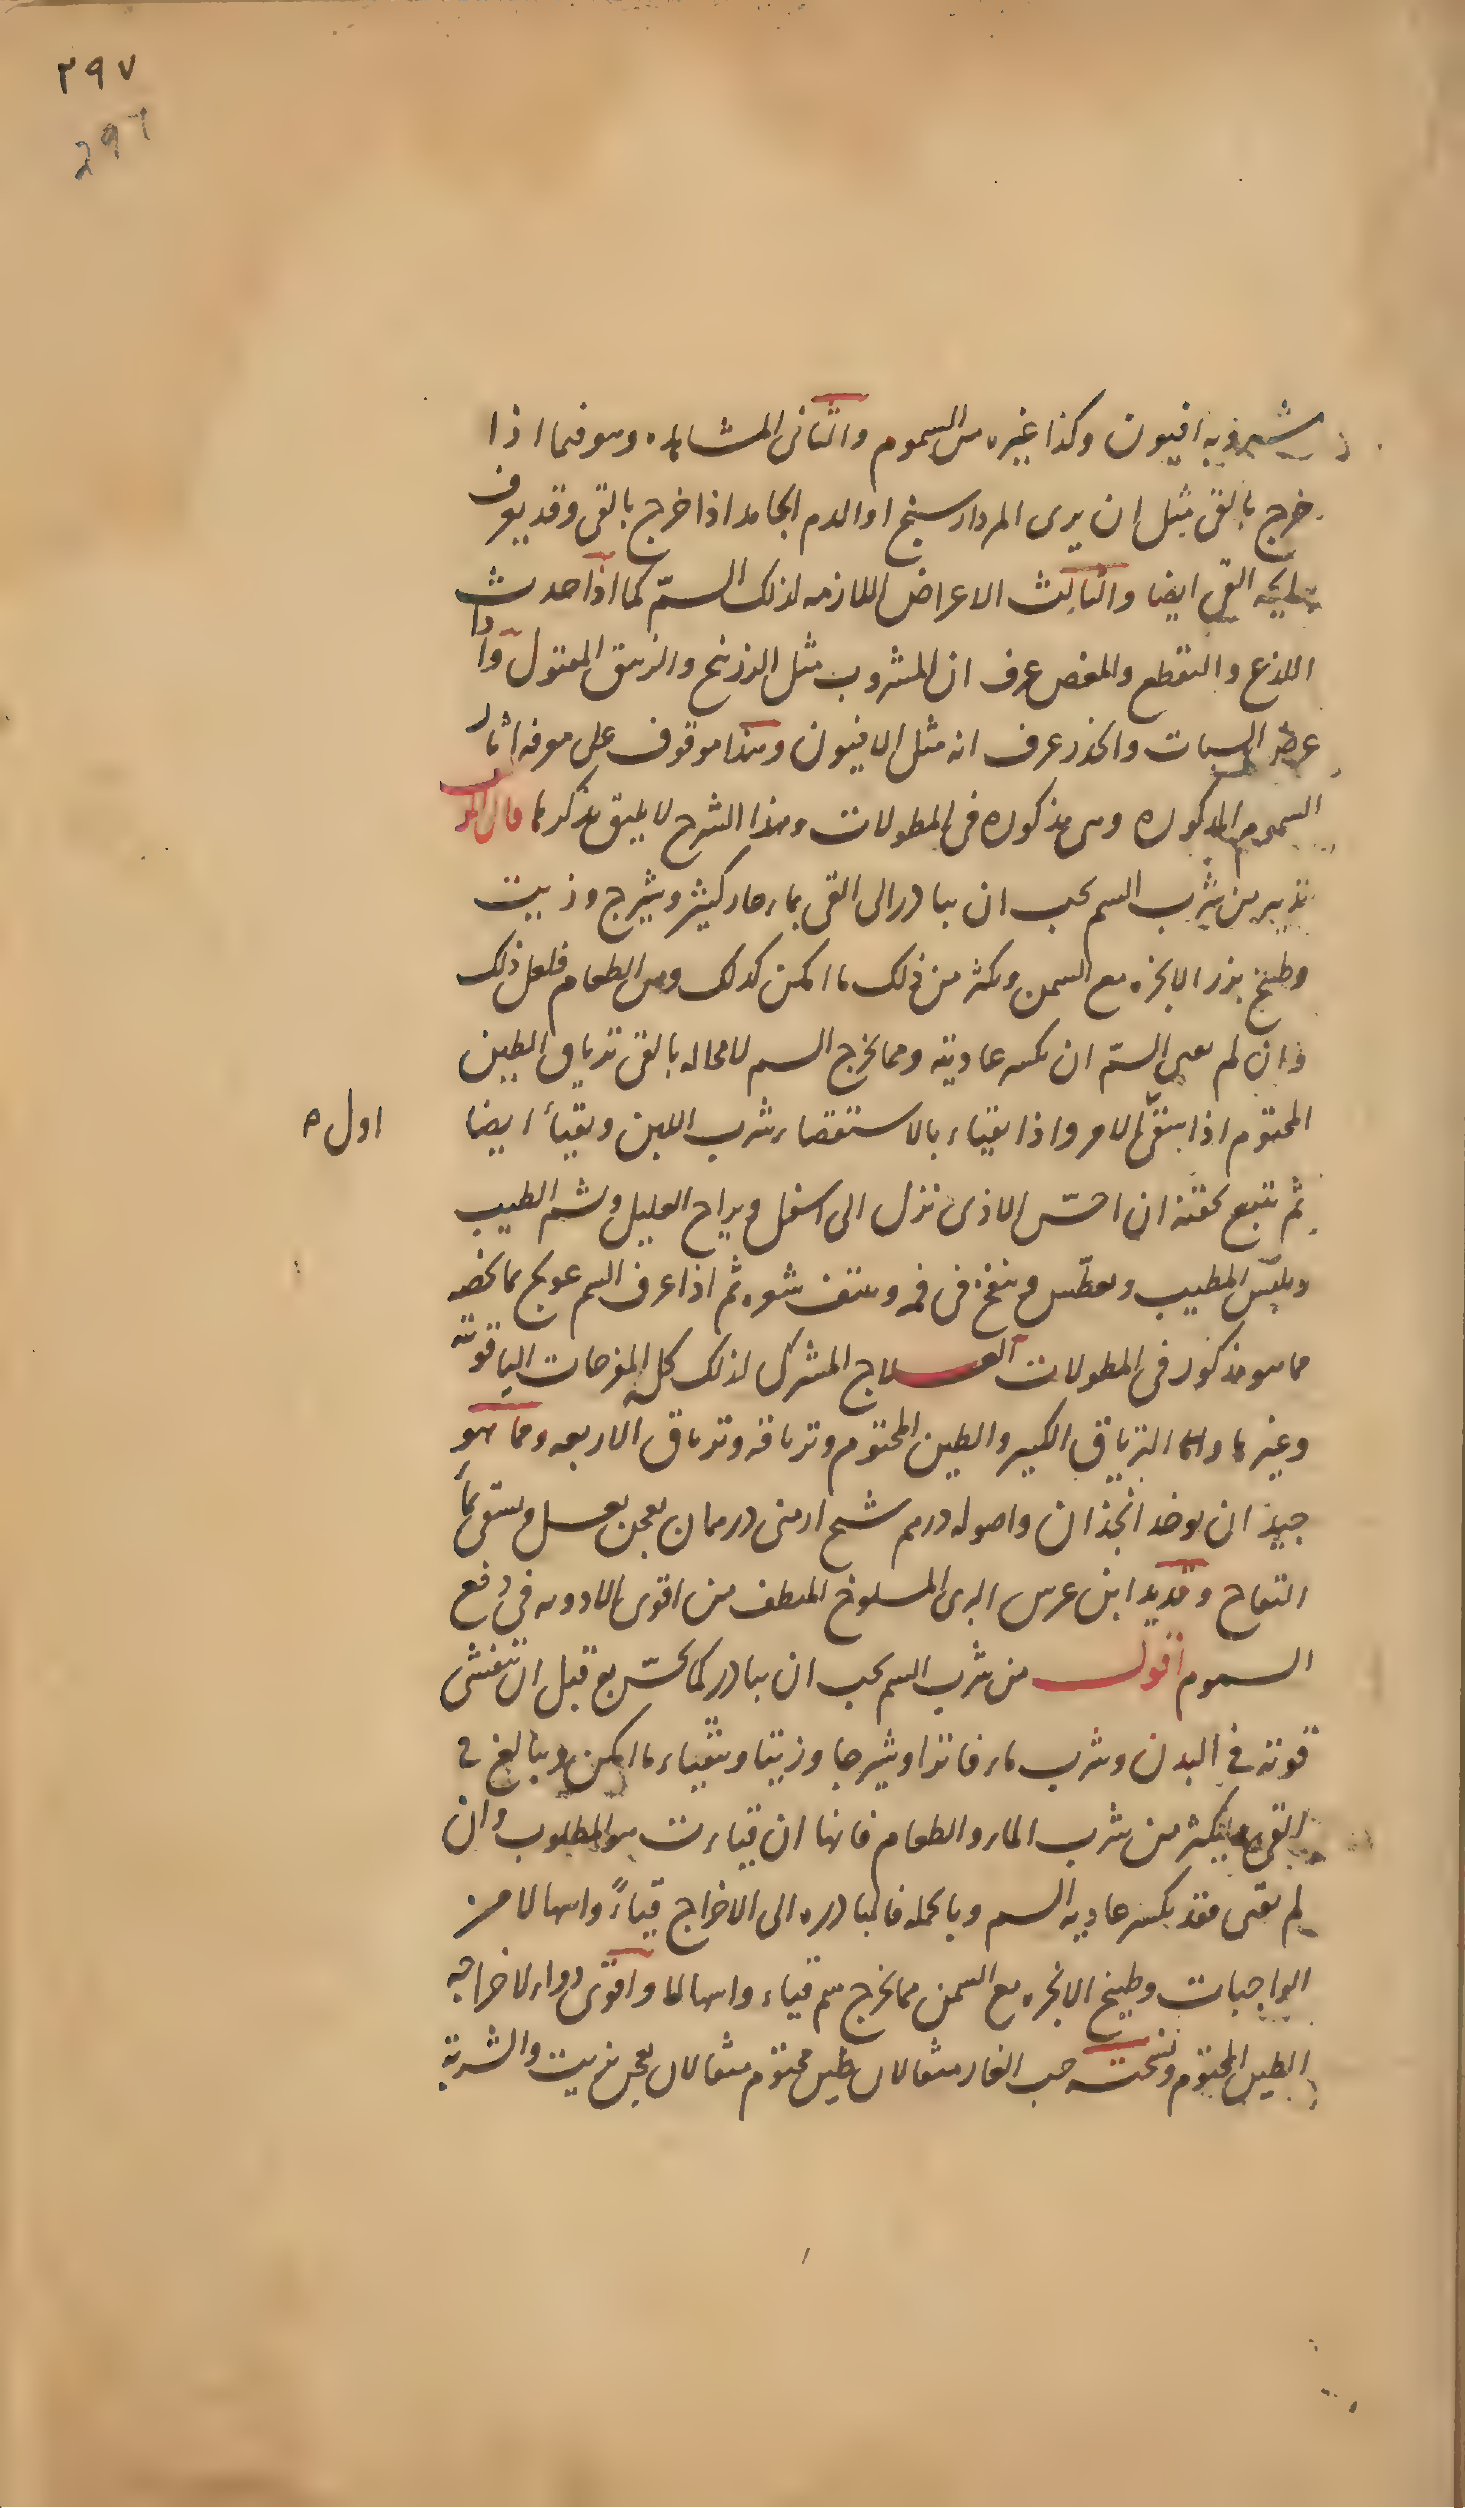 ٢٩٧
296
شرب فيه افيون وكذا غيره من السموم والثانى المشاهده وهو فيما اذا
خرج بالقى مثل ان يرى المرداسنج او الدم الجامد اذا خرج بالقى وقد يعرف
القى ايضا والثالث الاعراض اللازمه لذلك السمّ كما اذا حدث
اللذع والتقطع والمغص عرف ان المشروب مثل الزرنيخ والزيبق المقتول واذا
عرض السبات والخدر عرف انه مثل الافيون وهذا موقوف على معرفه اثار
السموم المذكوره وهى مذكوره فى المطولات وهذا الشرح لا يليق بذكرها قال المؤلف
تدبير من شرب السم يجب ان يبادر الى القى بماء حار كثير وشيرج وزيت
وطبيخ بزر الانجره مع السمن ويكثر من ذلك ما امكن كذلك ومن الطعام فلعل ذلك
وان لم يقىء السمّ ان يكسر عاديته ومما يخرج السم لا محاله بالقى ترياق الطين
المختوم اذا سقى الامر واذا تقياء بالاستقصاء شرب اللبن وتقيأ ايضا
اول ه
ثم يتبع بحقنه ان احسّ الاذى نزل الى اسفل ويراح العليل ويشم الطيب
ويلبّس المطيب ويعطّس وينفخ فى فمه وينتف شعره ثم اذا عرف السم عولج بما يخصه
مما هو مذكور فى المطولات العلاج المشترك لذلك كله المفرحات الياقوتيه
وغيرها واما الترياق الكبير والطين المختوم وترياقه وترياق الاربعه ومما هو
جيد ان يوخذ انجذان واصوله درهم شيح ارمنى درهمان يعجن بعسل ويسقى بماء
التفاح وقديد ابن عرس البرى المسلوخ المنظف من اقوى الادويه فى دفع
السموم اقول من شرب السم يجب ان يبادر كما يحسّ به قبل ان تتفشى
قوته فى البدن ويشرب ماء فاترا وشيرجا وزيتا ويتقياء ما امكن ويبالغ فى
القى ويكثر من شرب الماء والطعام فانها ان قياءت هو المطلوب وان
لم يقىء فقد يكسر عاديه السم وبالجمله فالمبادره الى الاخراج قياءً واسهالا من
الواجبات وطبيخ الانجره مع السمن مما يخرج سم قياء واسهالا واقوى دواء لاخراجه
الطين المختوم ونسخته حب الغار مثقالان طين مختوم مثقالان يعجن بزيت والشربة